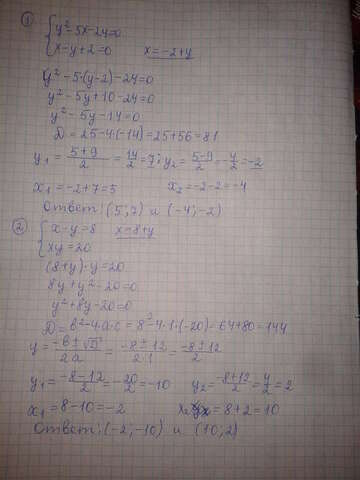 ① { y² - 5x - 24 = 0
x - y + 2 = 0   x = -2 + y
y² - 5·(y-2) - 24 = 0
y² - 5y + 10 - 24 = 0
y² - 5y - 14 = 0
D = 25 - 4·(-14) = 25 + 56 = 81
y₁ = (5+9)/2 = 14/2 = 7; y₂ = (5-9)/2 = -4/2 = -2
x₁ = -2 + 7 = 5   x₂ = -2 - 2 = -4
Ответ: (5; 7) и (-4; -2)
② { x - y = 8   x = 8 + y
xy = 20
(8+y)·y = 20
8y + y² - 20 = 0
y² + 8y - 20 = 0
D = b² - 4·a·c = 8² - 4·1·(-20) = 64 + 80 = 144
y = (-b ± √D)/2a = (-8 ± 12)/2·1 = (-8 ± 12)/2
y₁ = (-8-12)/2 = -20/2 = -10   y₂ = (-8+12)/2 = 4/2 = 2
x₁ = 8 - 10 = -2   x₂ = 8 + 2 = 10
Ответ: (-2; -10) и (10; 2)